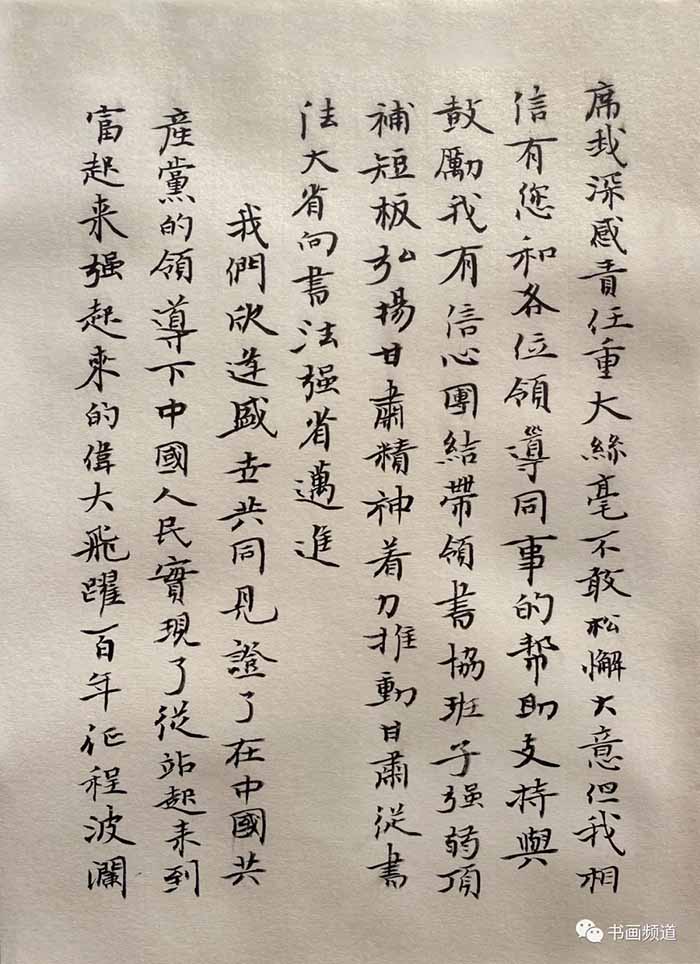 席我深感責任重大絲毫不敢松懈大意但我相
信有您和各位領導同事的幫助支持與
鼓勵我有信心團結帶領書協班子强弱項
補短板弘揚甘肅精神着力推動甘肅從書
法大省向書法强省邁進
我們欣逢盛世共同見證了在中國共
產黨的領導下中國人民實現了從站起来到
富起来强起來的偉大飛躍百年征程波瀾
书画频道